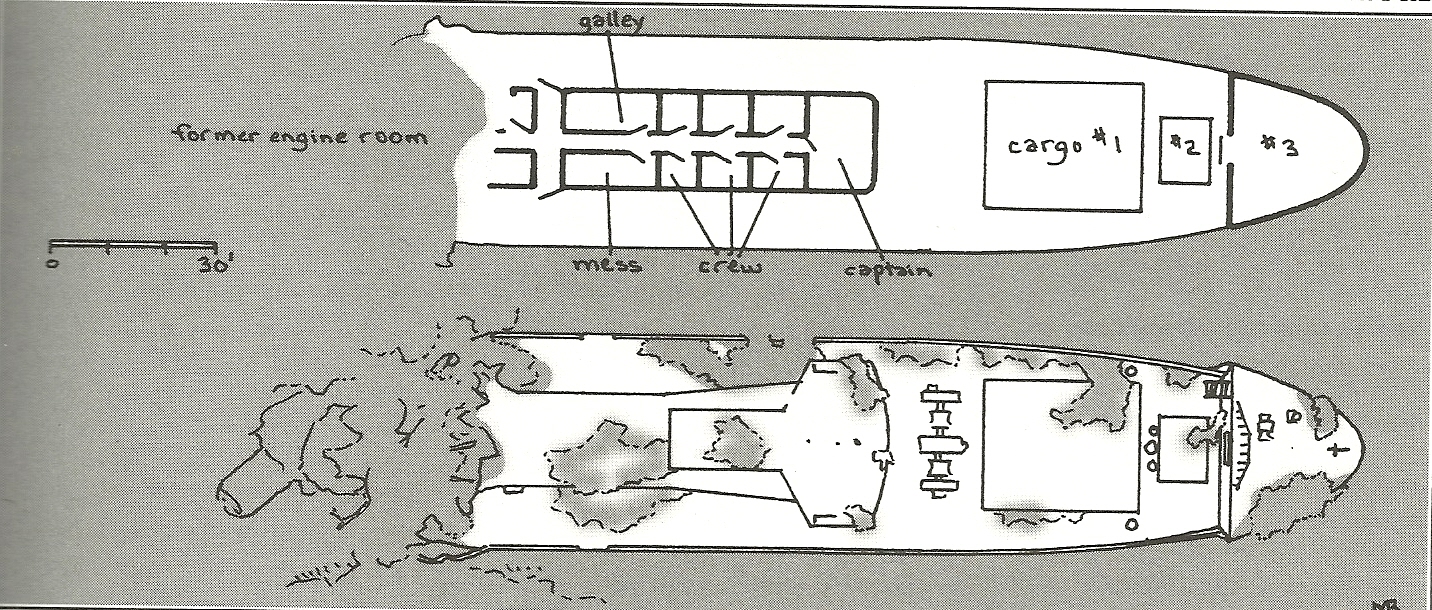 galley
former engine room
cargo #1
#2
#3
0
30'
mess
crew
captain